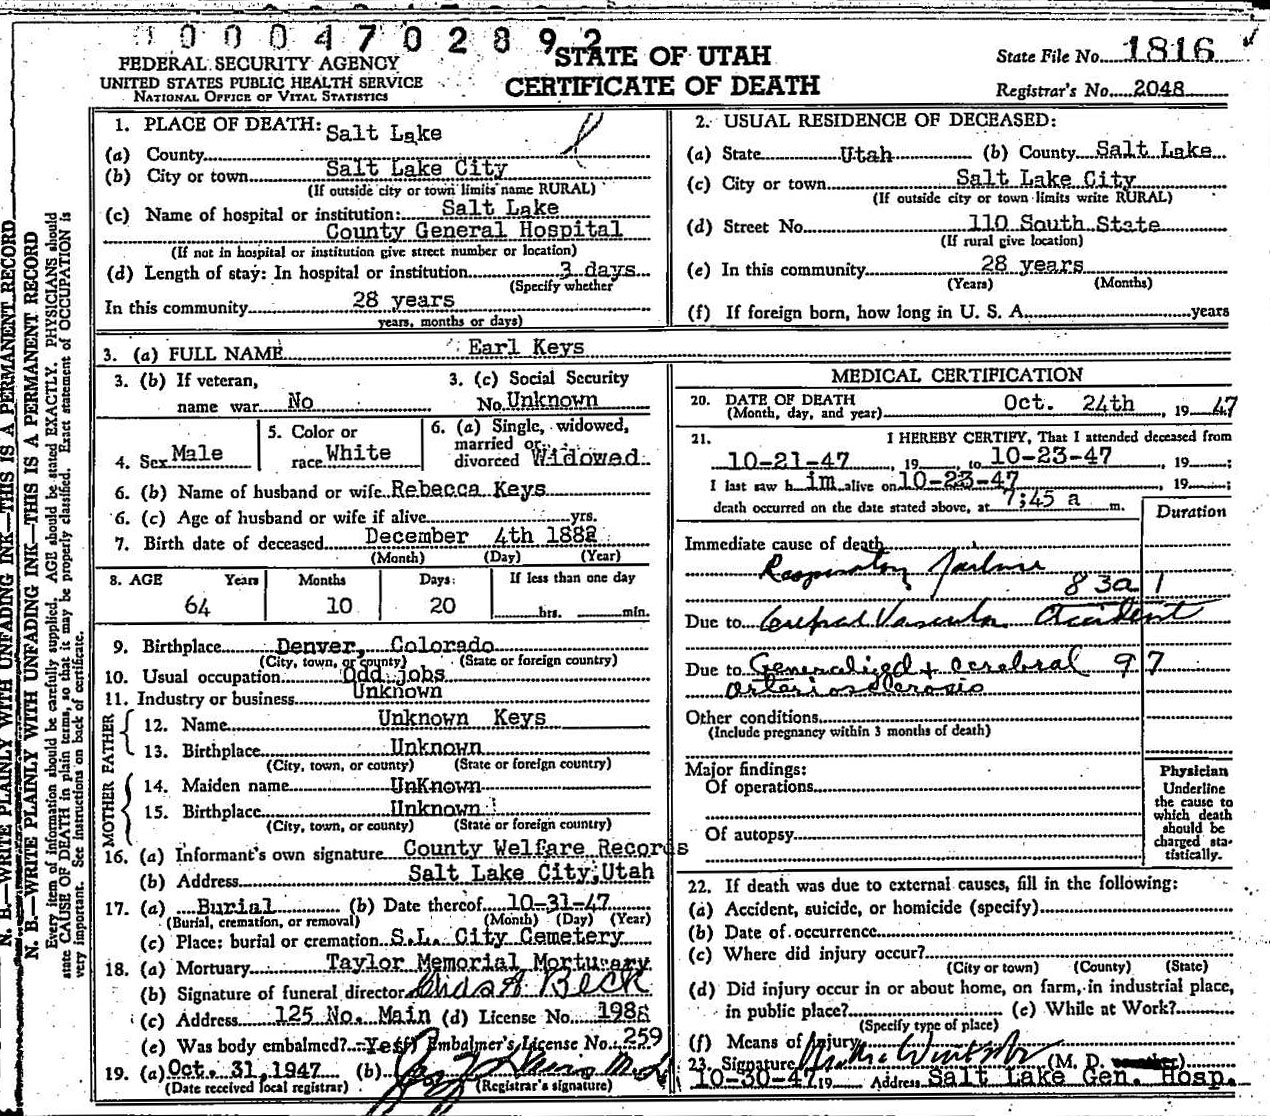 0000470289 2
FEDERAL SECURITY AGENCY
UNITED STATES PUBLIC HEALTH SERVICE
NATIONAL OFFICE OF VITAL STATISTICS
STATE OF UTAH
CERTIFICATE OF DEATH
State File No. 1816
Registrar's No. 2048
1. PLACE OF DEATH:
(a) County Salt Lake
(b) City or town Salt Lake City
(If outside city or town limits name RURAL)
(c) Name of hospital or institution: Salt Lake
County General Hospital
(If not in hospital or institution give street number or location)
(d) Length of stay: In hospital or institution 3 days
(Specify whether
In this community 28 years
years, months or days)
2. USUAL RESIDENCE OF DECEASED:
(a) State Utah (b) County Salt Lake
(c) City or town Salt Lake City
(If outside city or town limits write RURAL)
(d) Street No. 110 South State
(If rural give location)
(e) In this community 28 years
(Years) (Months)
(f) If foreign born, how long in U. S. A. years
3. (a) FULL NAME Earl Keys
3. (b) If veteran,
name war No
3. (c) Social Security
No. Unknown
4. Sex Male
5. Color or
race White
6. (a) Single, widowed,
married or
divorced Widowed
6. (b) Name of husband or wife Rebecca Keys
6. (c) Age of husband or wife if alive yrs.
7. Birth date of deceased December 4th 1882
(Month) (Day) (Year)
8. AGE Years Months Days: If less than one day
64 10 20 hrs. min.
9. Birthplace Denver, Colorado
(City, town, or county) (State or foreign country)
10. Usual occupation Odd jobs
11. Industry or business Unknown
FATHER
12. Name Unknown Keys
13. Birthplace Unknown
(City, town, or county) (State or foreign country)
MOTHER
14. Maiden name UnKnown
15. Birthplace Unknown
(City, town, or county) (State or foreign country)
16. (a) Informant's own signature County Welfare Records
(b) Address Salt Lake City, Utah
17. (a) Burial (b) Date thereof 10-31-47
(Burial, cremation, or removal) (Month) (Day) (Year)
(c) Place: burial or cremation S.L. City Cemetery
18. (a) Mortuary Taylor Memorial Morturary
(b) Signature of funeral director Chas A Beck
(c) Address 125 No. Main (d) License No. 198
(e) Was body embalmed? Yes Embalmer's License No. 259
19. (a) Oct. 31, 1947 (b)
(Date received local registrar) (Registrar's signature)
MEDICAL CERTIFICATION
20. DATE OF DEATH
(Month, day, and year) Oct. 24th, 19 47
21. I HEREBY CERTIFY, That I attended deceased from
10-21-47, 19 to 10-23-47, 19 ;
I last saw h im alive on 10-23-47, 19 ;
death occurred on the date stated above, at 7;45 a m.
Duration
Immediate cause of death
Respiratory failure
83a 1
Due to Cerebral Vascular Accident
Due to Generalized + cerebral 97
arteriosclerosis
Other conditions
(Include pregnancy within 3 months of death)
Major findings:
Of operations
Of autopsy
Physician
Underline
the cause to
which death
should be
charged sta-
tistically.
22. If death was due to external causes, fill in the following:
(a) Accident, suicide, or homicide (specify)
(b) Date of occurrence
(c) Where did injury occur?
(City or town) (County) (State)
(d) Did injury occur in or about home, on farm, in industrial place,
in public place? (e) While at Work?
(Specify type of place)
(f) Means of Injury
23. Signature (M. D.
10-30-47 19 Address Salt Lake Gen. Hosp.
N. B.—WRITE PLAINLY WITH UNFADING INK—THIS IS A PERMANENT RECORD
N. B.—WRITE PLAINLY WITH UNFADING INK—THIS IS A PERMANENT RECORD
Every item of information should be carefully supplied. AGE should be stated EXACTLY. PHYSICIANS should
state CAUSE OF DEATH in plain terms, so that it may be properly classified. Exact statement of OCCUPATION is
very important. See instructions on back of certificate.